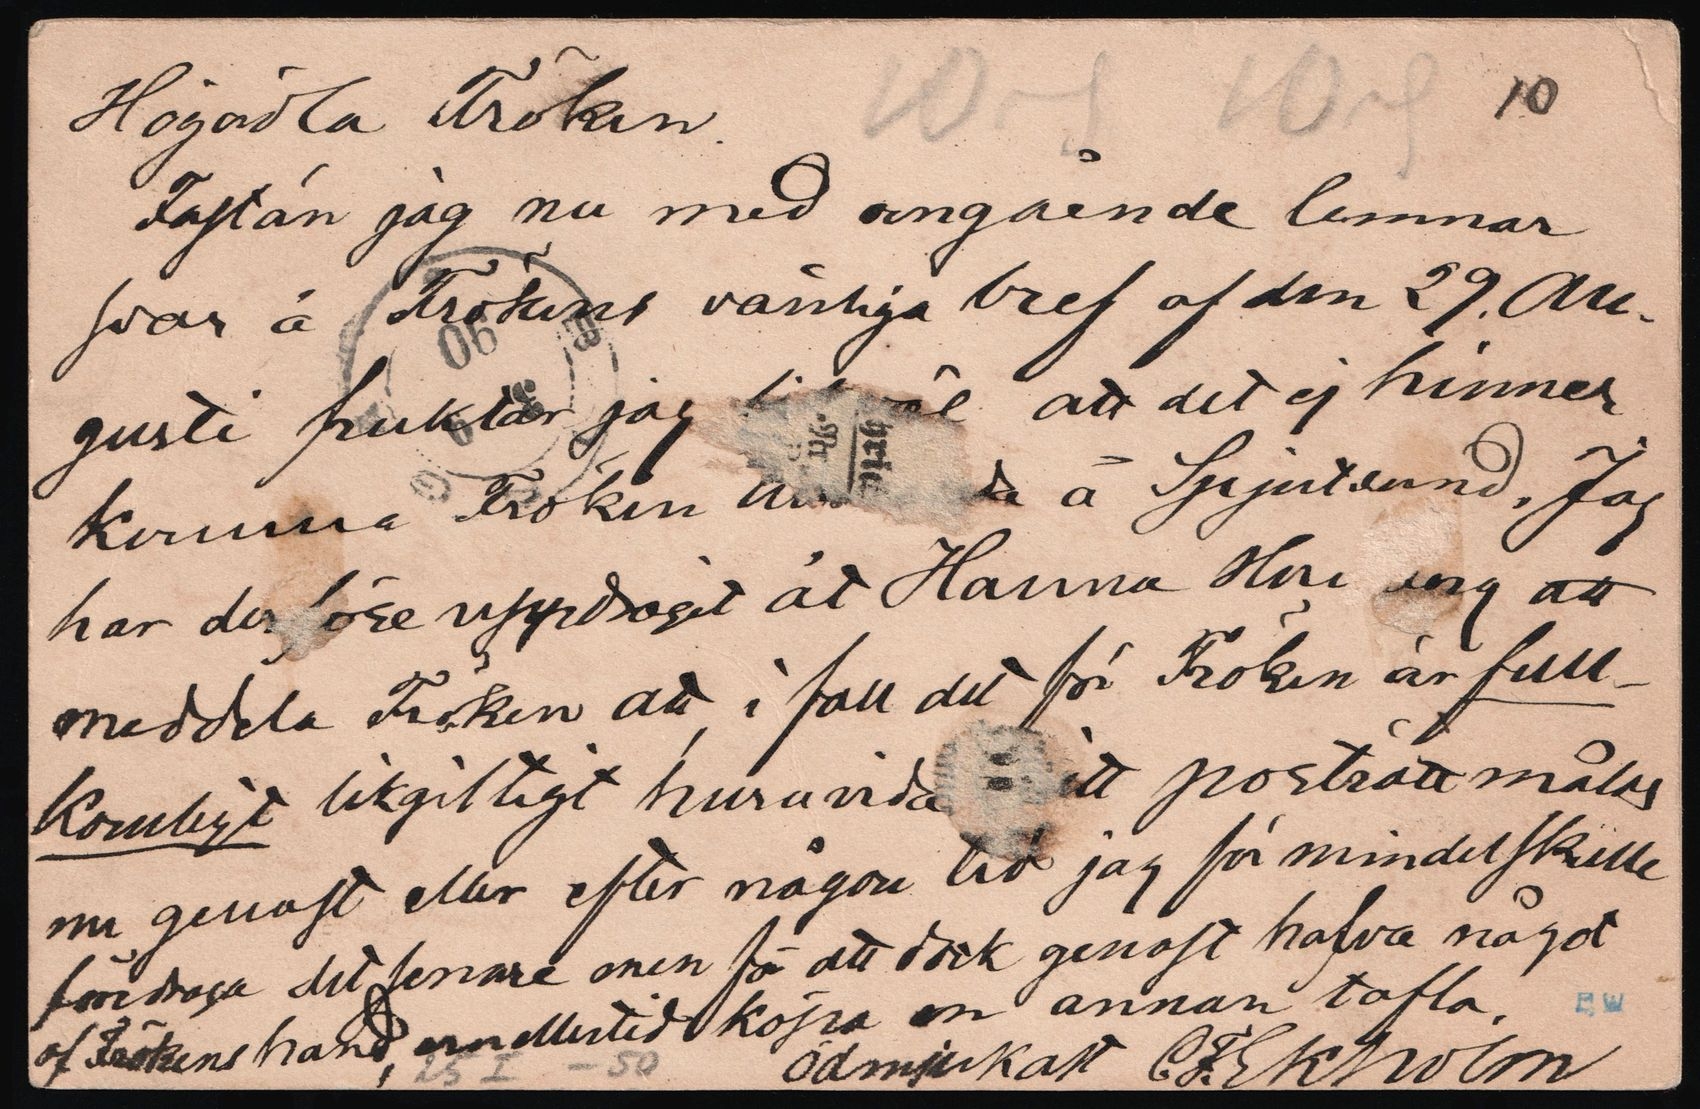 Högädla Fröken
10
Fastän jag nu med omgående lemnar
svar å Frökens vänliga bref af den 29. Au-
gusti fruktar jag att det ej hinner
komma Fröken å Sjöjutsund. Jag
har derföre uppdragit åt Hanna att
meddela Fröken att, i fall det för Fröken är full-
komligt likgiltigt huruvida porträtt målas
nu genast eller efter någon tid jag för min del skulle
föredraga det senare men få att dock genast hafva något
af Frökens hand, emellertid köpa en annan tafla.
Ödmjukast C. F. Ekholm
25 I - 50
EW